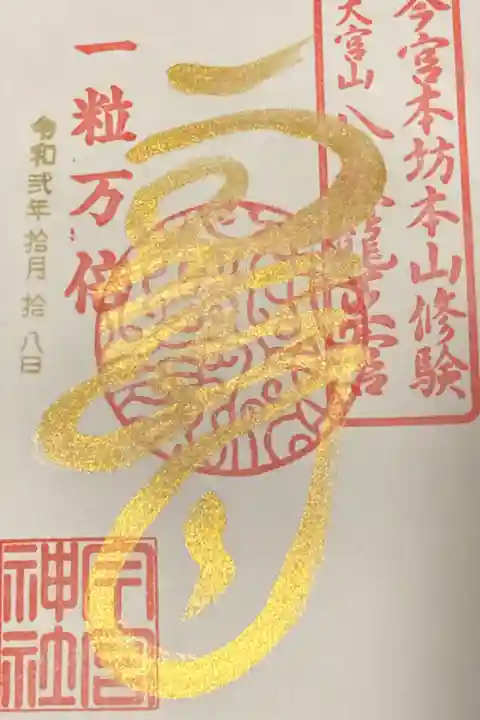 今宮本坊本山修験
大宮山八
龍
寿
一粒万倍
令和弐年 拾月 拾八日
今宮
神社